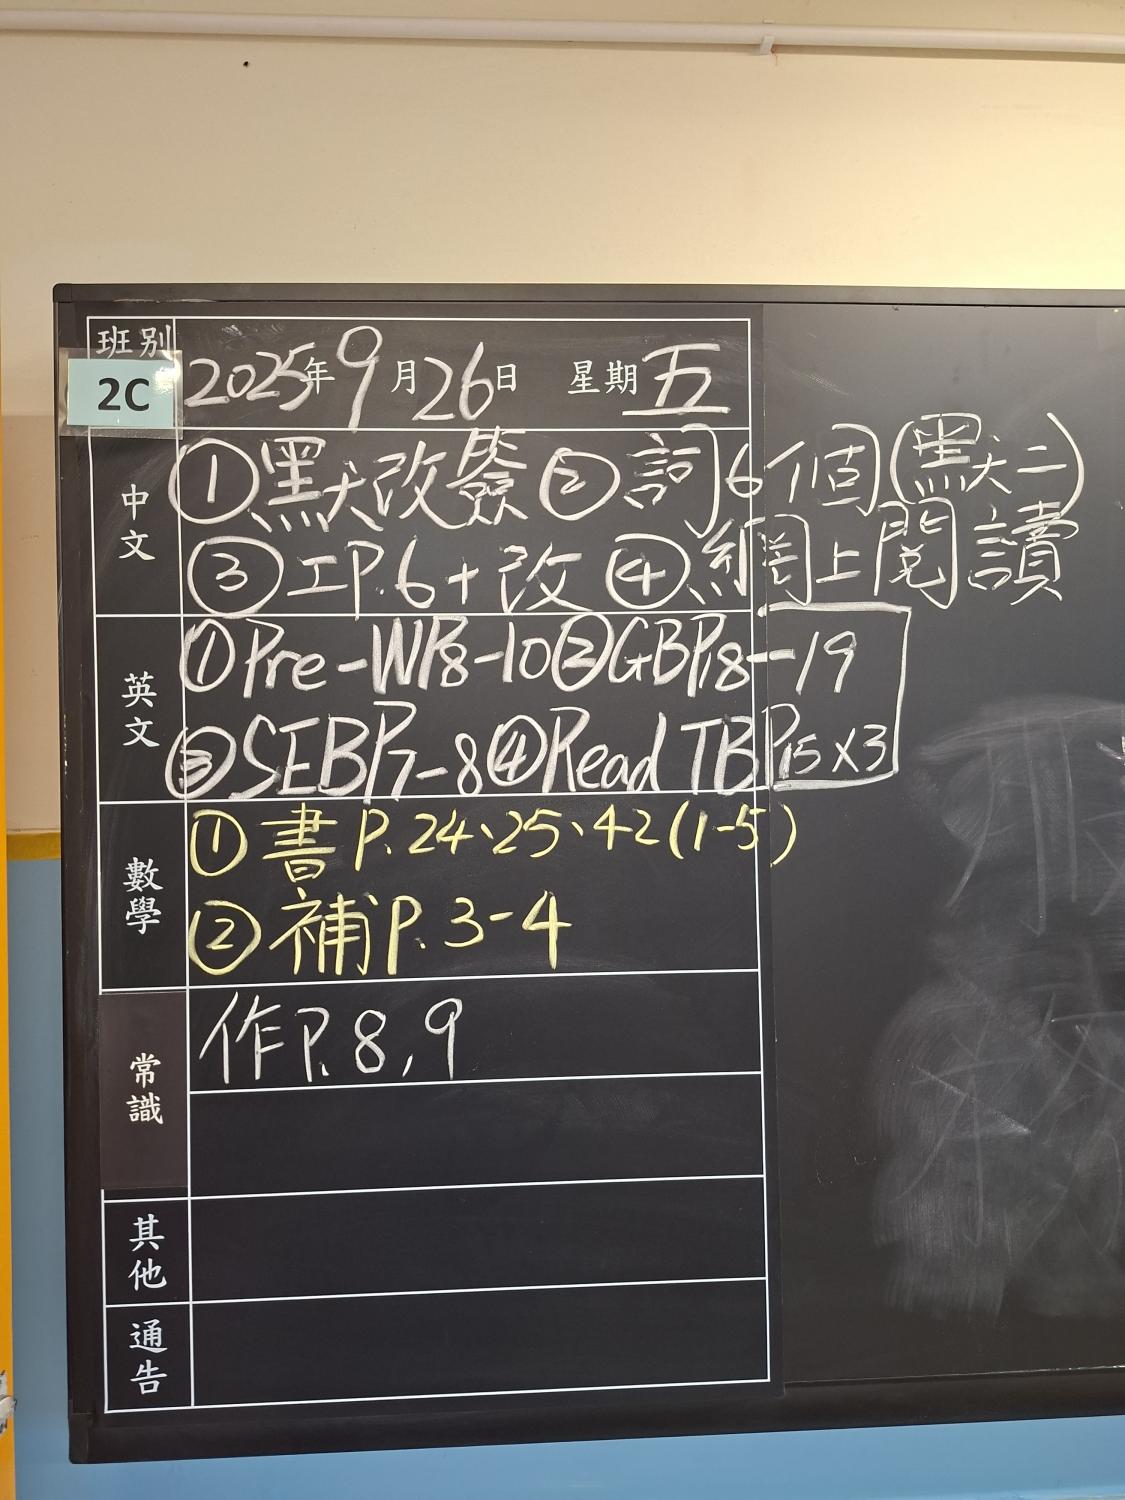 班別
2C
2025年9月26日 星期五
中文
①默改簽 ②詞6個(默二)
③工P.6+改 ④網上閱讀
英文
①Pre-WP8-10②GBP18-19
③SEBP7-8④Read TBP15x3
數學
①書P.24、25、42(1-5)
②補P.3-4
常識
作P.8,9
其他
通告